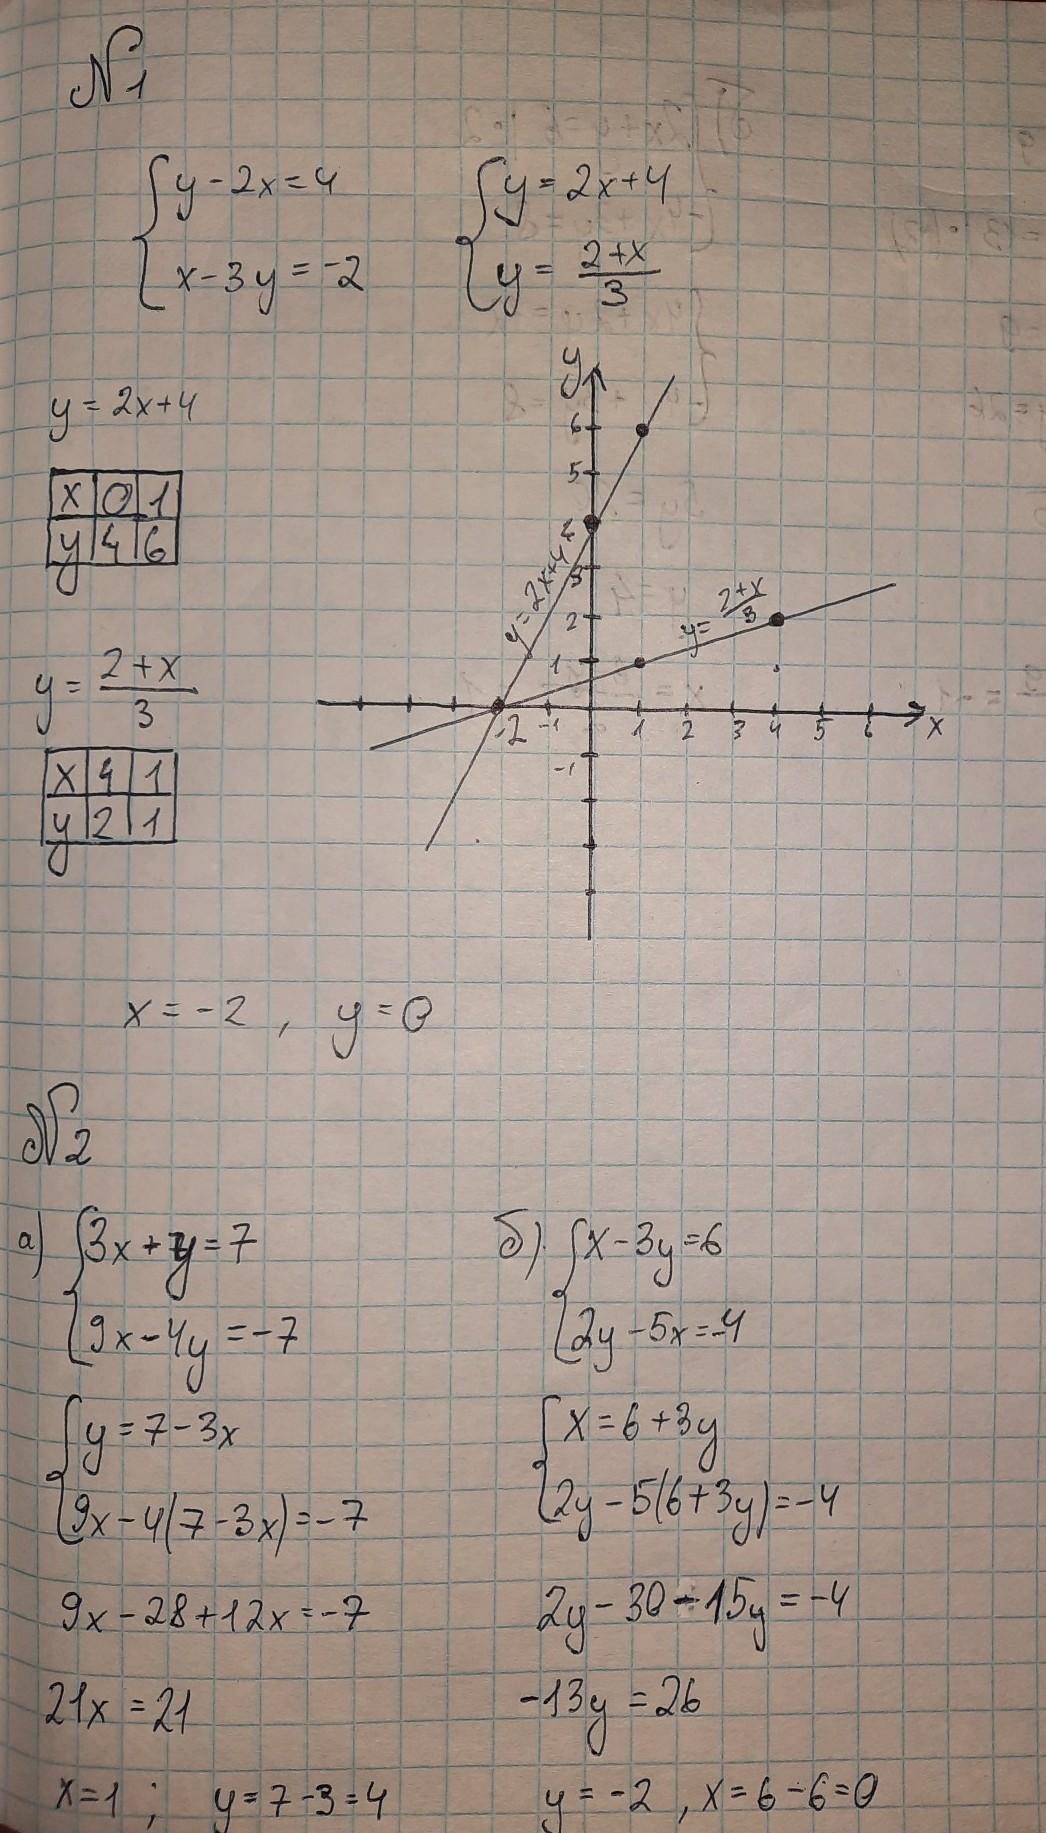 №1
{y-2x=4
{x-3y=-2
{y=2x+4
{y=\frac{2+x}{3}
y=2x+4
x 0 1
y 4 6
y=\frac{2+x}{3}
x 4 1
y 2 1
y
6
5
4
3
2
1
-2 -1 1 2 3 4 5 6 x
-1
y=2x+4
y=\frac{2+x}{3}
x=-2, y=0
№2
а) {3x+y=7
{9x-4y=-7
{y=7-3x
{9x-4(7-3x)=-7
9x-28+12x=-7
21x=21
x=1; y=7-3=4
б). {x-3y=6
{2y-5x=-4
{x=6+3y
{2y-5(6+3y)=-4
2y-30-15y=-4
-13y=26
y=-2, x=6-6=0